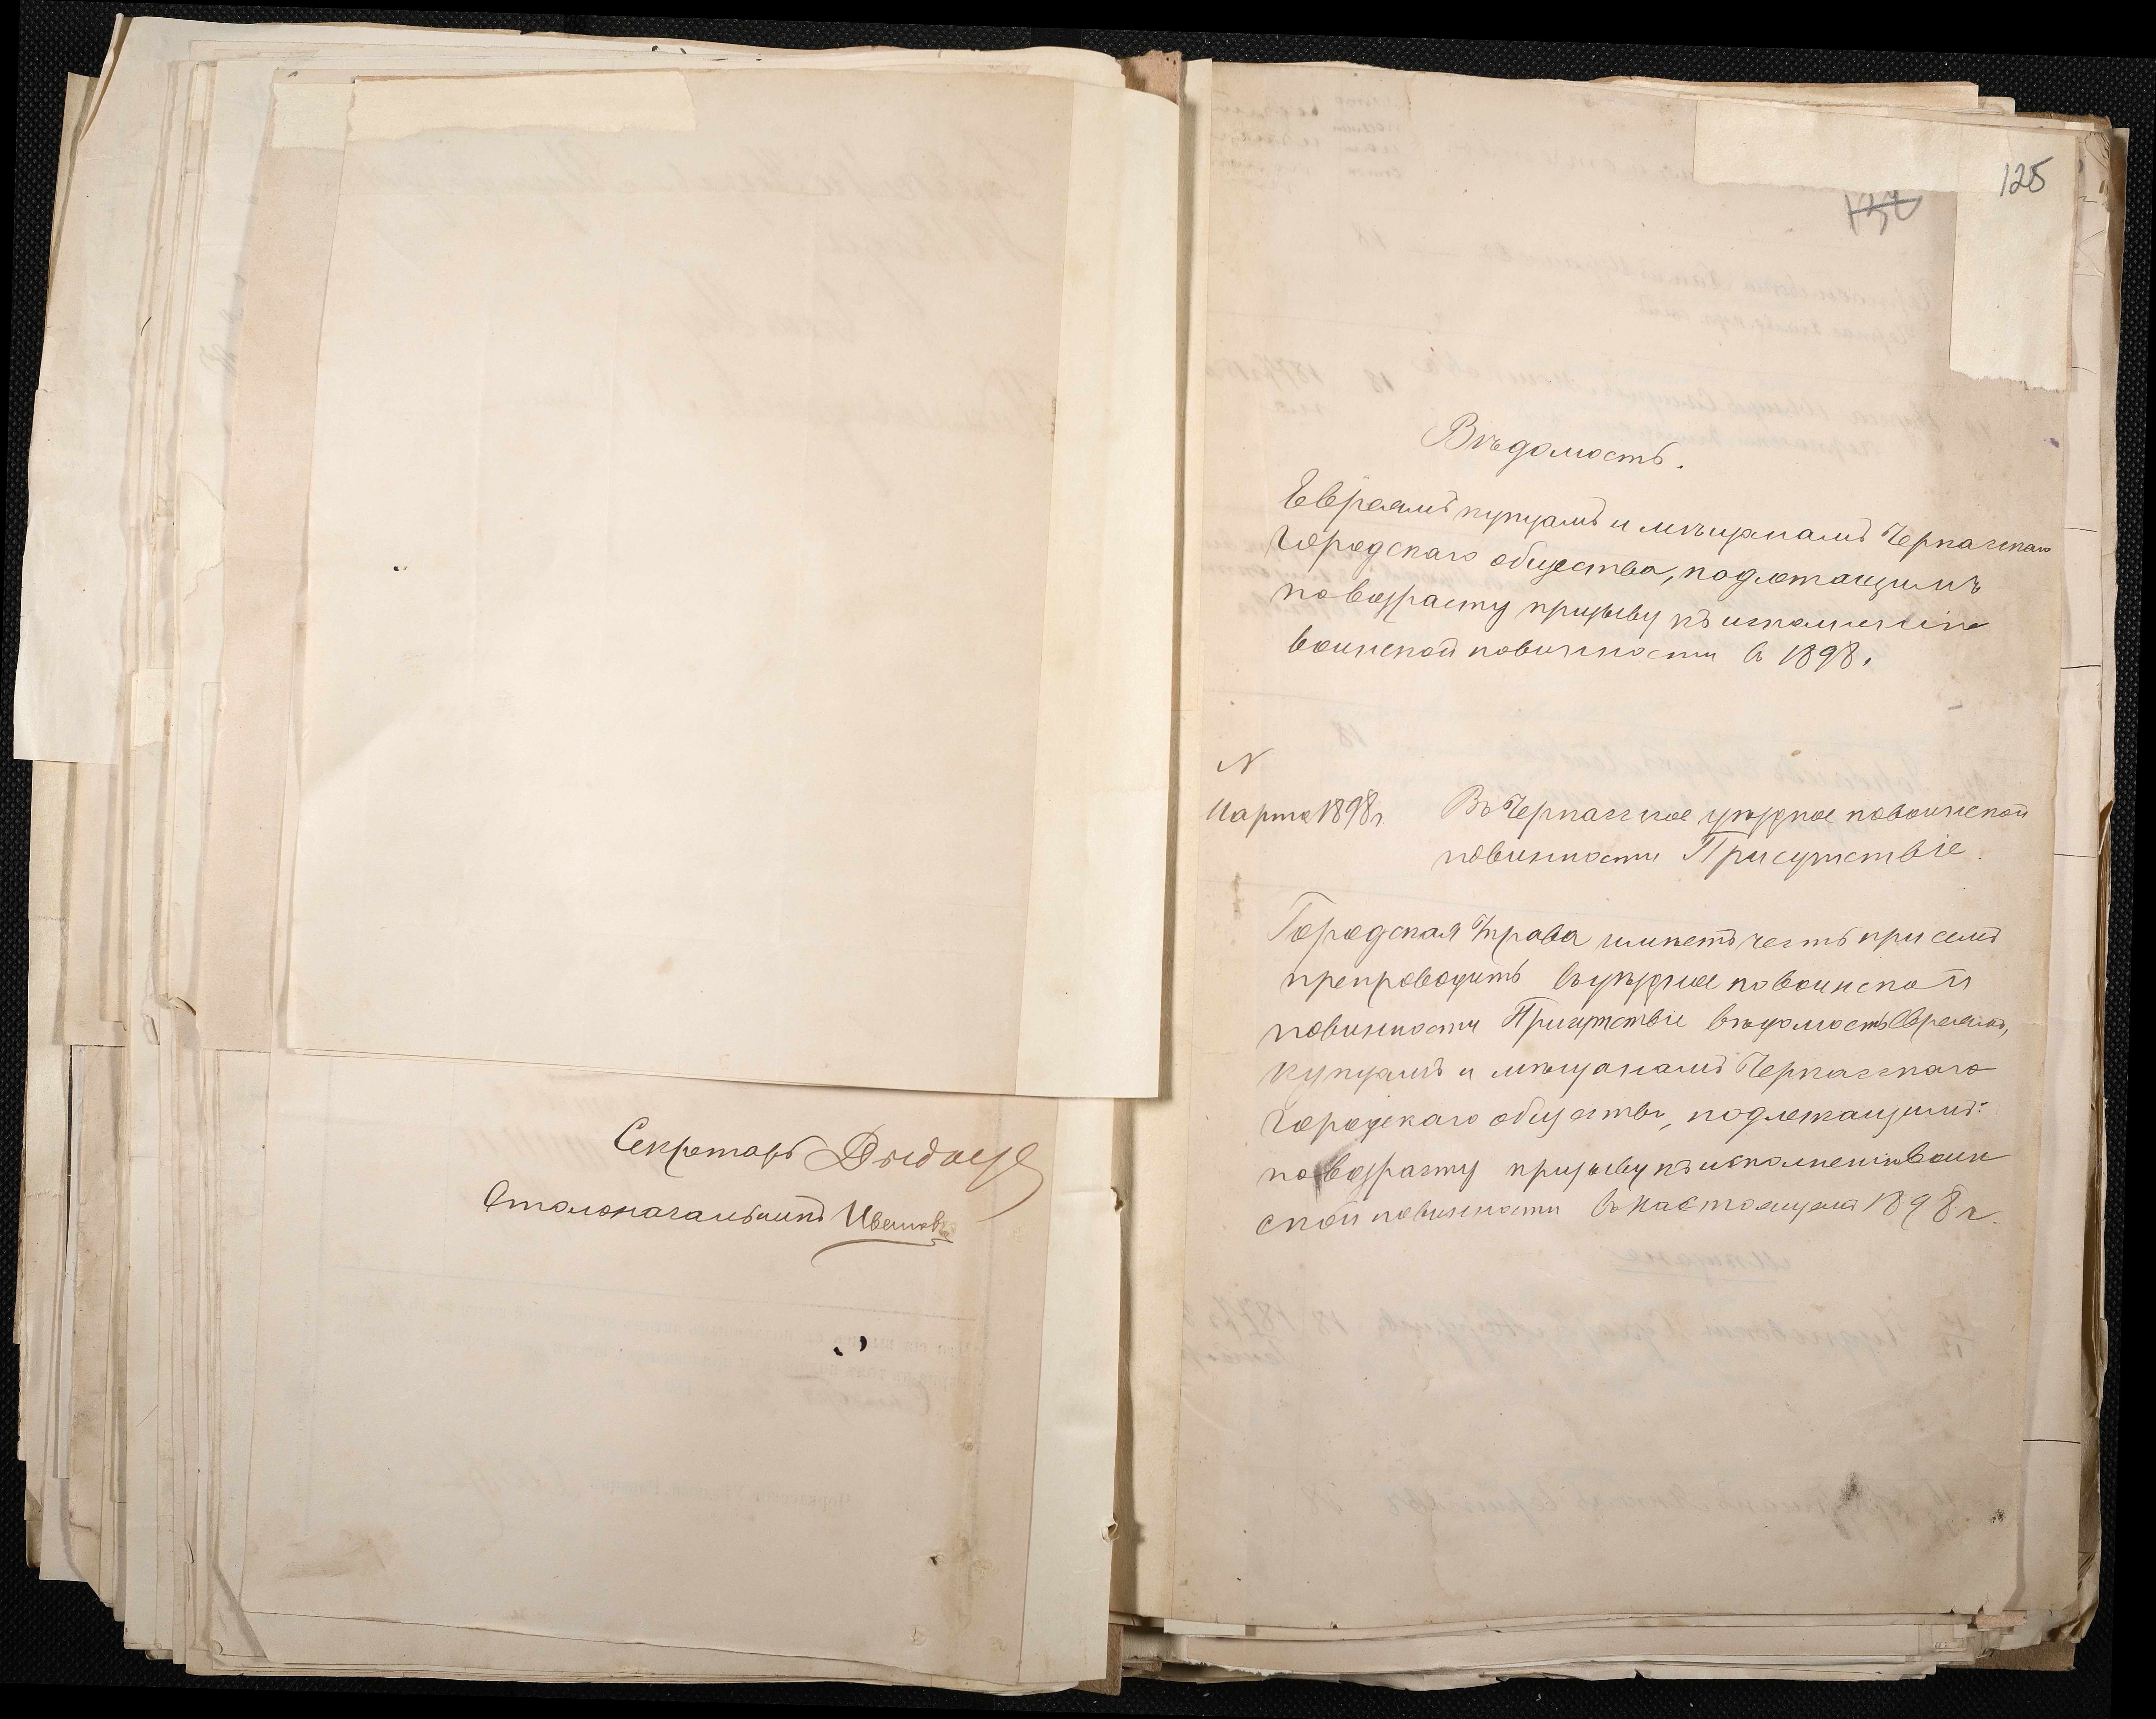 Секретарь
Столоначальникъ
125
Вѣдомость.
Евреямъ купцамъ и мѣщанамъ Черкасскаго
городскаго общества, подлежащимъ
по возрасту призыву къ исполненію
воинской повинности въ 1898.
N
Марта 1898 г.
Въ Черкасское уѣздное по воинской
повинности Присутствіе.
Городская Управа имѣетъ честь при семъ
препроводить въ уѣздное по воинской
повинности Присутствіе вѣдомость Евреямъ,
купцамъ и мѣщанамъ Черкасскаго
городскаго общества, подлежащимъ
по возрасту призыву къ исполненію воин
ской повинности въ настоящемъ 1898 г.